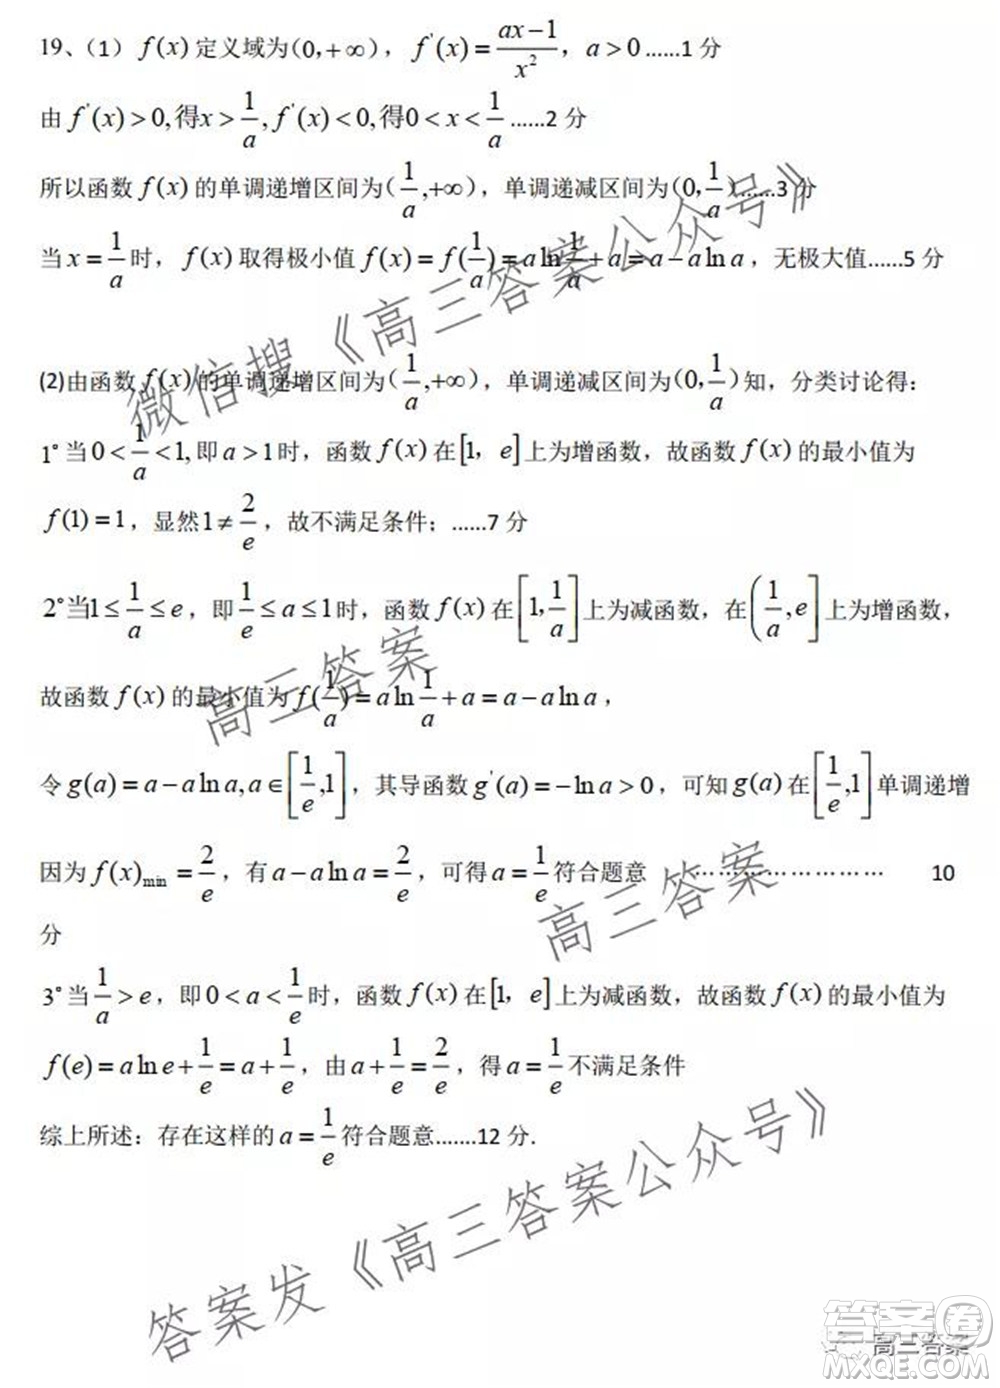 19、（1） f(x) 定义域为(0,+∞)， f'(x)=\frac{ax-1}{x^2}，a>0 ......1 分
由 f'(x)>0,得x>\frac{1}{a},f'(x)<0,得0<x<\frac{1}{a} ......2 分
所以函数 f(x) 的单调递增区间为(\frac{1}{a},+∞)，单调递减区间为(0,\frac{1}{a})......3 分
当 x=\frac{1}{a} 时，f(x) 取得极小值 f(x)=f(\frac{1}{a})=a\ln\frac{1}{a}+a=a-a\ln a，无极大值......5 分
(2)由函数 f(x) 的单调递增区间为(\frac{1}{a},+∞)，单调递减区间为(0,\frac{1}{a})知，分类讨论得：
1°当 0<\frac{1}{a}<1,即 a>1时，函数 f(x) 在[1，e]上为增函数，故函数 f(x) 的最小值为
f(1)=1，显然1≠\frac{2}{e}，故不满足条件；......7 分
2°当1≤\frac{1}{a}≤e，即\frac{1}{e}≤a≤1时，函数 f(x) 在[1,\frac{1}{a}]上为减函数，在(\frac{1}{a},e]上为增函数，
故函数 f(x) 的最小值为 f(\frac{1}{a})=a\ln\frac{1}{a}+a=a-a\ln a，
令 g(a)=a-a\ln a,a∈[\frac{1}{e},1]，其导函数 g'(a)=-\ln a>0，可知 g(a) 在[\frac{1}{e},1]单调递增
因为 f(x)_{min}=\frac{2}{e}，有 a-a\ln a=\frac{2}{e}，可得 a=\frac{1}{e} 符合题意 ……………………… 10
分
3°当\frac{1}{a}>e，即 0<a<\frac{1}{e} 时，函数 f(x) 在[1，e]上为减函数，故函数 f(x) 的最小值为
f(e)=a\ln e+\frac{1}{e}=a+\frac{1}{e}，由 a+\frac{1}{e}=\frac{2}{e}，得 a=\frac{1}{e} 不满足条件
综上所述：存在这样的 a=\frac{1}{e} 符合题意.......12 分.
微信搜《高三答案公众号》
高三答案
高三答案
答案发《高三答案公众号》
高三答案
答案圈
MXQE.COM